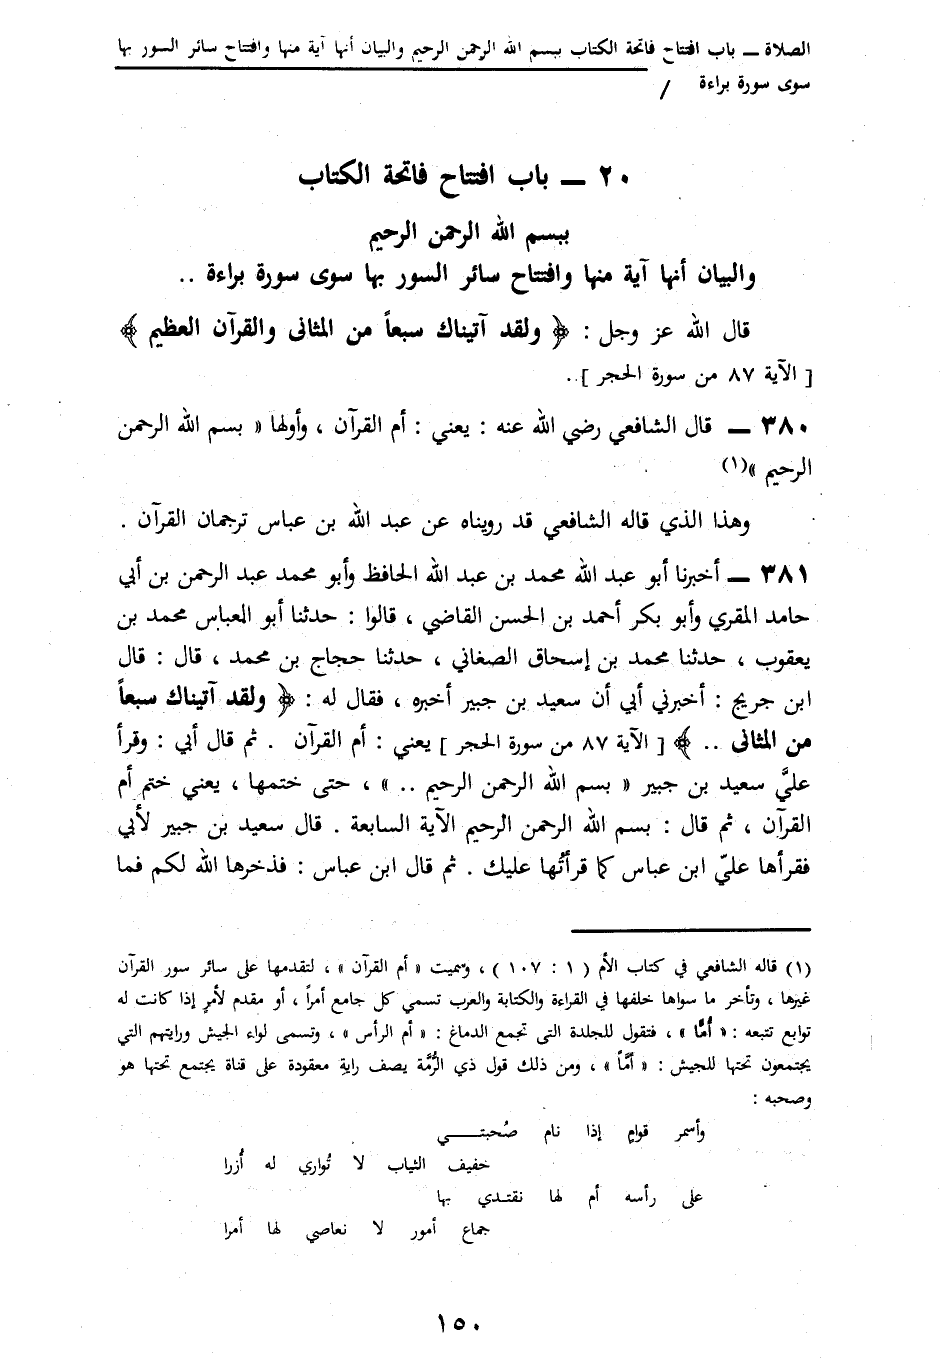 الصلاة ــ باب افتتاح فاتحة الكتاب ببسم الله الرحمن الرحيم والبيان أنها آية منها وافتتاح سائر السور بها
سوى سورة براءة /
٢٠ ــ باب افتتاح فاتحة الكتاب
ببسم الله الرحمن الرحيم
والبيان أنها آية منها وافتتاح سائر السور بها سوى سورة براءة ..
قال الله عز وجل : ﴿ ولقد آتيناك سبعاً من المثانى والقرآن العظيم ﴾
[ الآية ٨٧ من سورة الحجر ]..
٣٨٠ ــ قال الشافعي رضي الله عنه : يعني : أم القرآن ، وأولها « بسم الله الرحمن
الرحيم »(١)
وهذا الذي قاله الشافعي قد رويناه عن عبد الله بن عباس ترجمان القرآن .
٣٨١ ــ أخبرنا أبو عبد الله محمد بن عبد الله الحافظ وأبو محمد عبد الرحمن بن أبي
حامد المقري وأبو بكر أحمد بن الحسن القاضي ، قالوا : حدثنا أبو العباس محمد بن
يعقوب ، حدثنا محمد بن إسحاق الصغاني ، حدثنا حجاج بن محمد ، قال : قال
ابن جريج : أخبرني أبي أن سعيد بن جبير أخبره ، فقال له : ﴿ ولقد آتيناك سبعاً
من المثانى .. ﴾ [ الآية ٨٧ من سورة الحجر ] يعني : أم القرآن . ثم قال أبي : وقرأ
عليَّ سعيد بن جبير « بسم الله الرحمن الرحيم .. » ، حتى ختمها ، يعني ختم أم
القرآن ، ثم قال : بسم الله الرحمن الرحيم الآية السابعة . قال سعيد بن جبير لأبي
فقرأها عليّ ابن عباس كما قرأتُها عليك . ثم قال ابن عباس : فذخرها الله لكم فما
(١) قاله الشافعي في كتاب الأم ( ١ : ١٠٧ ) ، وسميت « أم القرآن » ، لتقدمها على سائر سور القرآن
غيرها ، وتأخر ما سواها خلفها في القراءة والكتابة والعرب تسمي كل جامع أمراً ، أو مقدم لأمرٍ إذا كانت له
توابع تتبعه : « أُمًّا » ، فتقول للجلدة التى تجمع الدماغ : « أم الرأس » ، وتسمى لواء الجيش ورايتهم التي
يجتمعون تحتها للجيش : « أمَّاً » ، ومن ذلك قول ذي الرُّمَّة يصف رايةٍ معقودة على قناة يجتمع تحتها هو
وصحبه :
وأسمر قوامٍ إذا نام صُحبتــــي
خفيف الثياب لا تُواري له أُزرا
على رأسه أم لها نقتدي بها
جماع أمور لا نعاصي لها أمرا
١٥٠